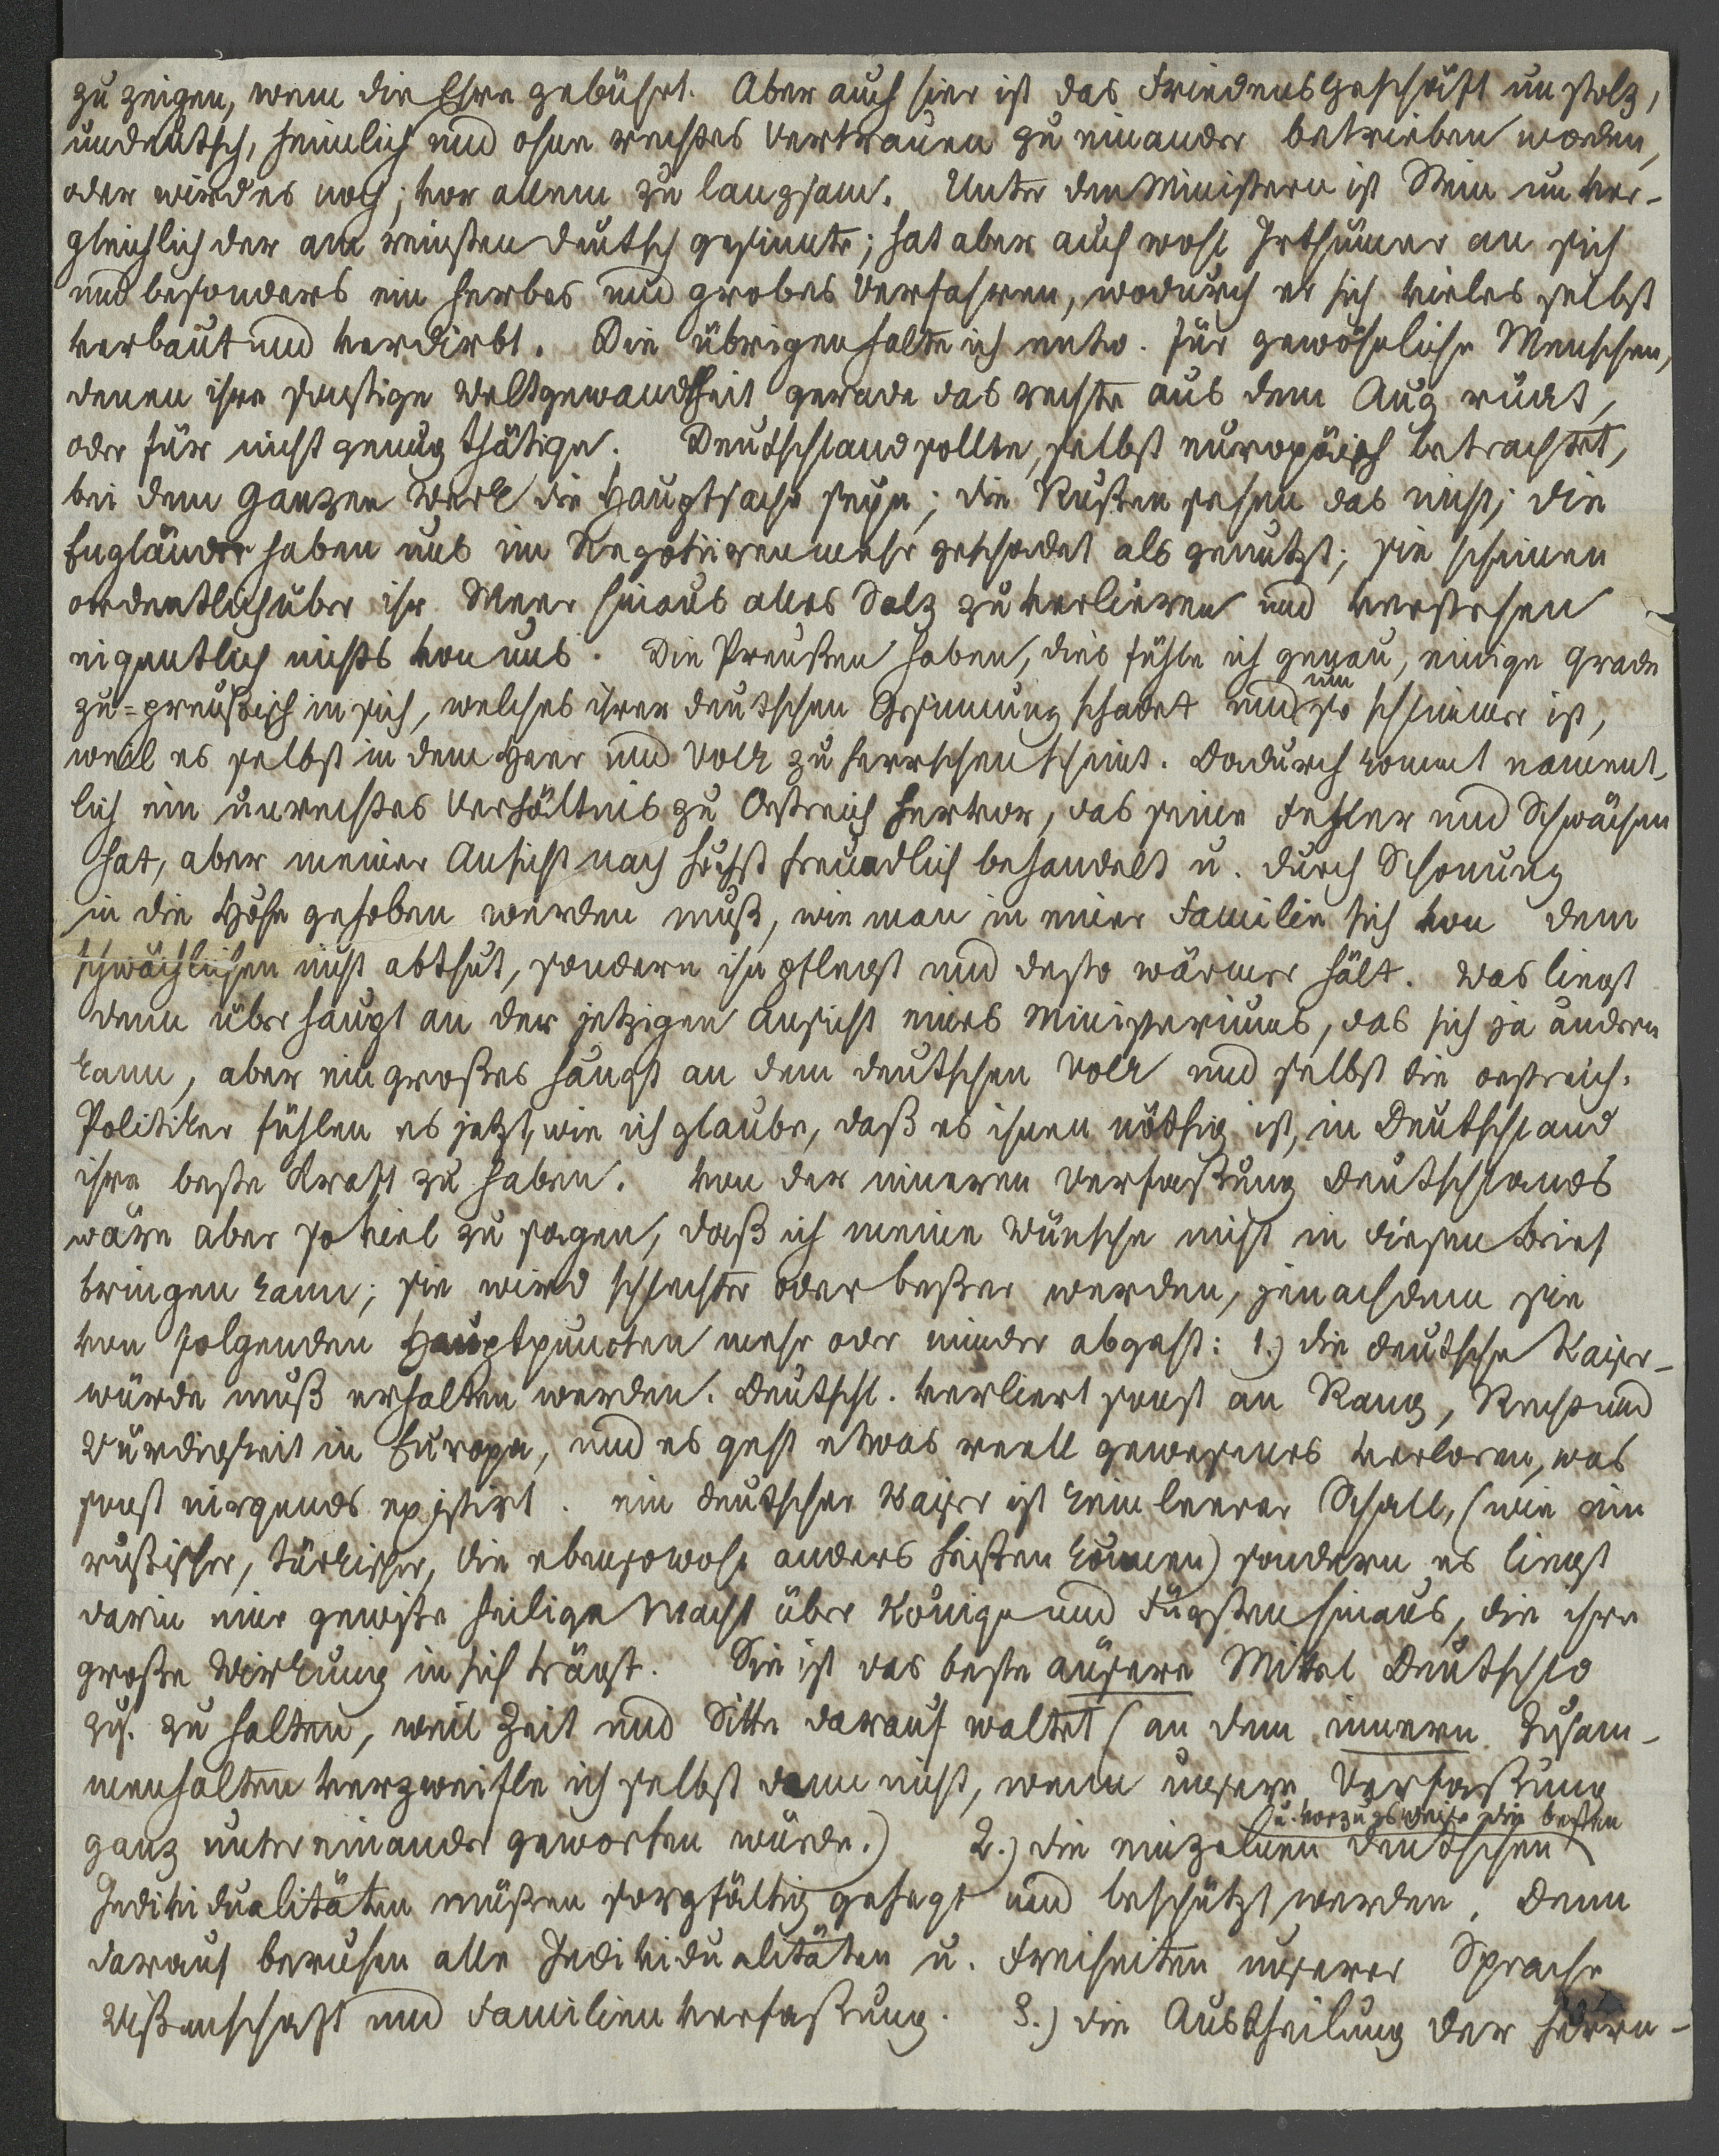 zu zeigen, wem die Ehre gebührt. Aber auch hier ist das Friedensgeschäft unstolz,
undeutsch, heimlich und ohne rechtes Vertrauen zu einander betrieben worden,
oder wird es noch; vor allem zu langsam. Unter den Ministern ist Stein unver-
gleichlich der am reinsten deutsch gesinnte; hat aber auch wohl Irthümer an sich
und besonders ein herbes und grobes Verfahren, wodurch er sich vieles selbst
verbaut und verdirbt. Die übrigen halte ich entw. für gewöhnliche Menschen,
denen ihre sonstige Weltgewandtheit gerade das rechte aus dem Aug rückt,
oder für nicht genug thätige. Deutschland sollte, selbst europäisch betrachtet,
bei dem ganzen Werk die Hauptsache seyn; die Rußen sehen das nicht; die
Engländer haben uns im Negotiiren mehr geschadet als genutzt; sie scheinen
ordentlich über ihr Meer hinaus alles Salz zu verlieren und verstehen
eigentlich nichts von uns. Die Preußen haben, dies fühle ich genau, einige Grade
zu-preußisch in sich, welches ihrer deutschen Gesinnung schadet und um so schlimmer ist,
weil es selbst in dem Heer und Volk zu herrschen scheint. Dadurch kommt nament-
lich ein unrechtes Verhältnis zu Östreich hervor, das seine Fehler und Schwächen
hat, aber meiner Ansicht nach höchst freundlich behandelt u. durch Schonung
in die Höhe gehoben werden muß, wie man in einer Familie sich von dem
schwächlichen nicht abthut, sondern ihn pflegt und desto wärmer hält. Was liegt
denn überhaupt an der jetzigen Ansicht eines Ministeriums, das sich ja ändern
kann, aber ein großes hängt an dem deutschen Volk und selbst die oestreich.
Politiker fühlen es jetzt, wie ich glaube, daß es ihnen nöthig ist, in Deutschland
ihre beste Kraft zu haben. Von der inneren Verfaßung Deutschlands
wäre aber so viel zu sagen, daß ich meine Wünsche nicht in diesen Brief
bringen kann; sie wird schlechter oder beßer werden, jenachdem sie
von folgenden Hauptpuncten mehr oder minder abgeht: 1.) die deutsche Kaiser-
würde muß erhalten werden. Deutschl. verliert sonst an Rang, Recht und
Würdigkeit in Europa, und es geht etwas reell gewesenes verloren, was
sonst nirgends existirt. ein deutscher Kaiser ist kein leerer Schall, (wie ein
rußischer, türkischer, die ebensowohl anders heißen können) sondern es liegt
darin eine gewiße heilige Macht über Könige und Fürsten hinaus, die ihre
große Wirkung in sich trägt. Sie ist das beste äußere Mittel Deutschld
zus. zu halten, weil Zeit und Sitte darauf waltet (an dem innern Zusam-
menhalten verzweifle ich selbst dann nicht, wenn unsere Verfaßung
ganz untereinander geworfen würde.) 2.) die einzelnen deutschen u. vorzugsweise die besten
Individualitäten müßen sorgfältig gehegt und beschützt werden. denn
darauf beruhen alle Individualitäten u. Freiheiten unserer Sprache
Wißenschaft und Familienverfaßung. 3.) die Austheilung der